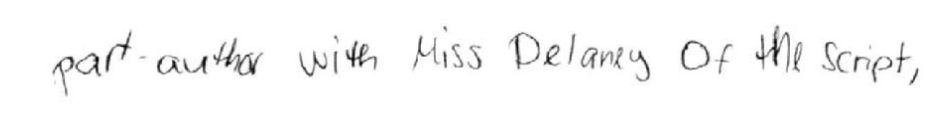 part-author with Miss Delaney Of the script,